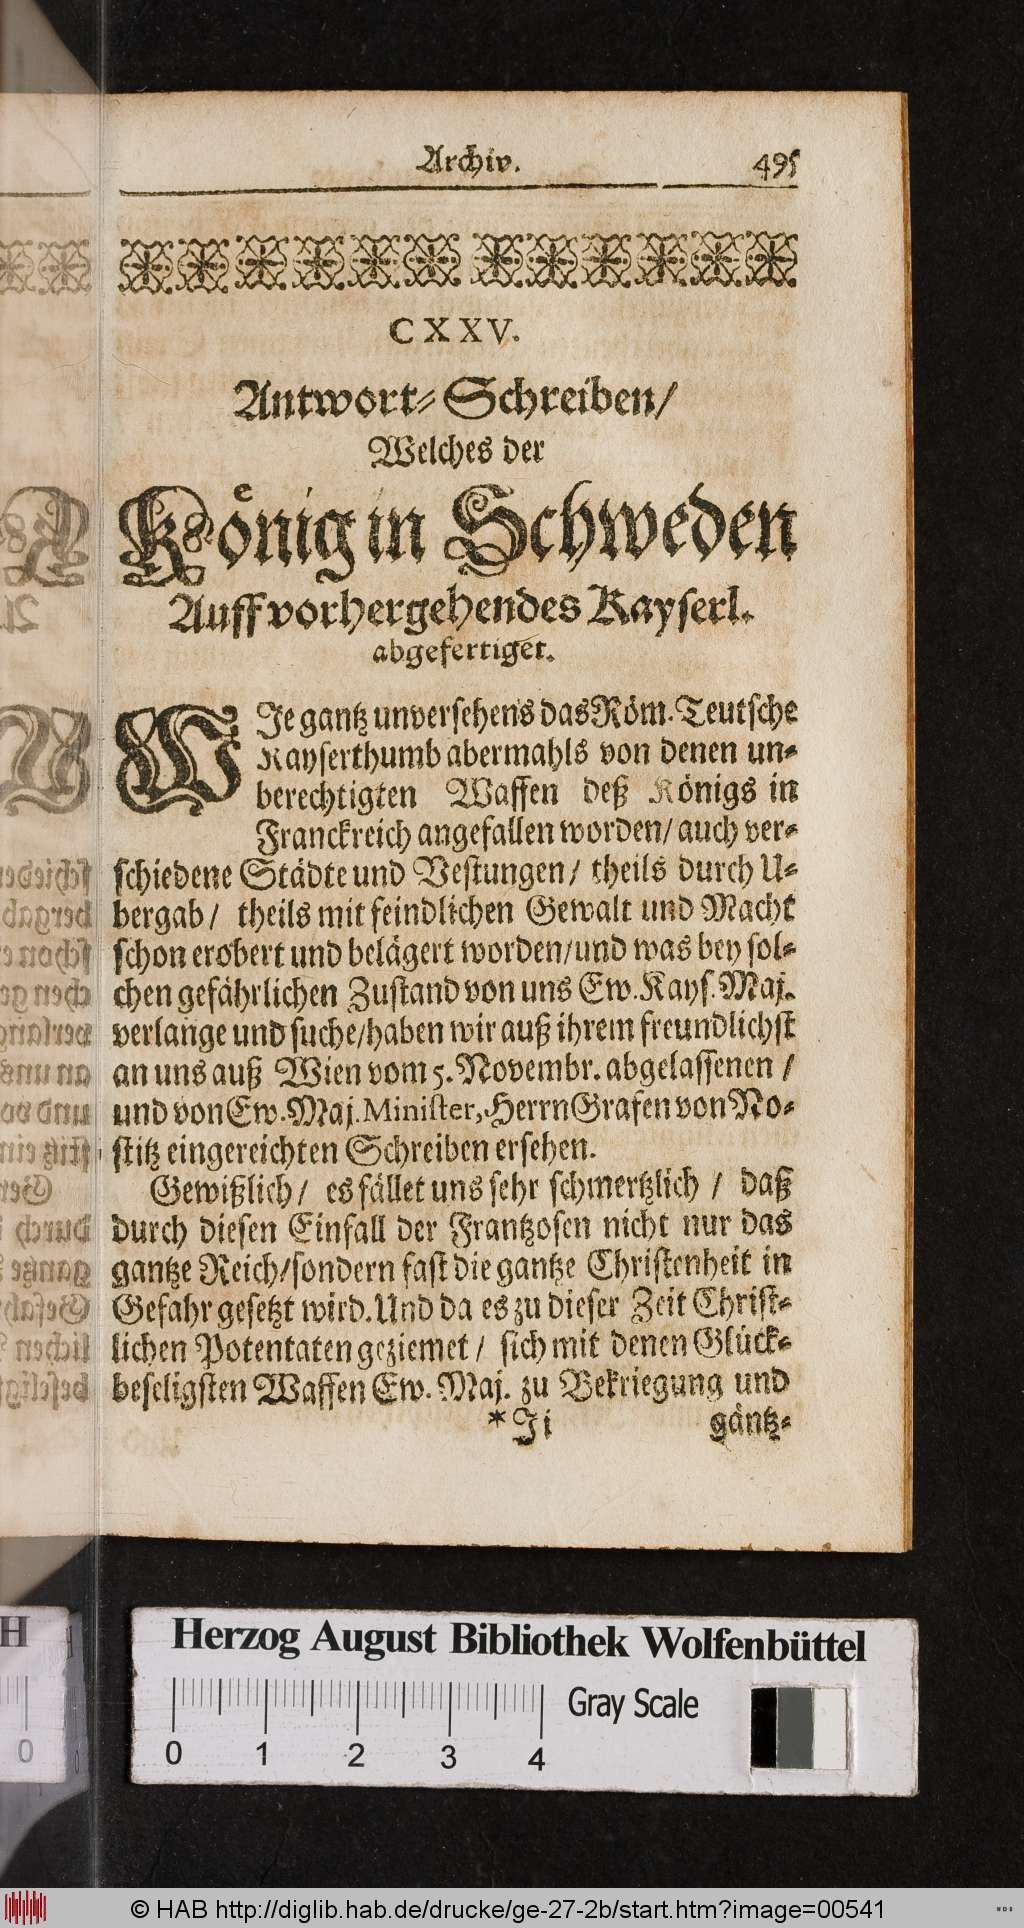 Archiv. 495
CXXV.
Antwort-Schreiben/
Welches der
König in Schweden
Auff vorhergehendes Kayserl.
abgefertiget.
WJe gantz unversehens das Röm. Teutsche
Kayserthumb abermahls von denen un-
berechtigten Waffen deß Königs in
Franckreich angefallen worden/ auch ver-
schiedene Städte und Vestungen/ theils durch U-
bergab/ theils mit feindlichen Gewalt und Macht
schon erobert und belägert worden/und was bey sol-
chen gefährlichen Zustand von uns Ew. Kays. Maj.
verlange und suche/haben wir auß ihrem freundlichst
an uns auß Wien vom 5. Novembr. abgelassenen /
und von Ew. Maj. Minister, Herrn Grafen von No-
stitz eingereichten Schreiben ersehen.
Gewißlich/ es fället uns sehr schmertzlich / daß
durch diesen Einfall der Frantzosen nicht nur das
gantze Reich/sondern fast die gantze Christenheit in
Gefahr gesetzt wird. Und da es zu dieser Zeit Christ-
lichen Potentaten geziemet / sich mit denen Glück-
beseligsten Waffen Ew. Maj. zu Bekriegung und
*Ji gäntz-
Herzog August Bibliothek Wolfenbüttel
0 1 2 3 4 Gray Scale
© HAB http://diglib.hab.de/drucke/ge-27-2b/start.htm?image=00541